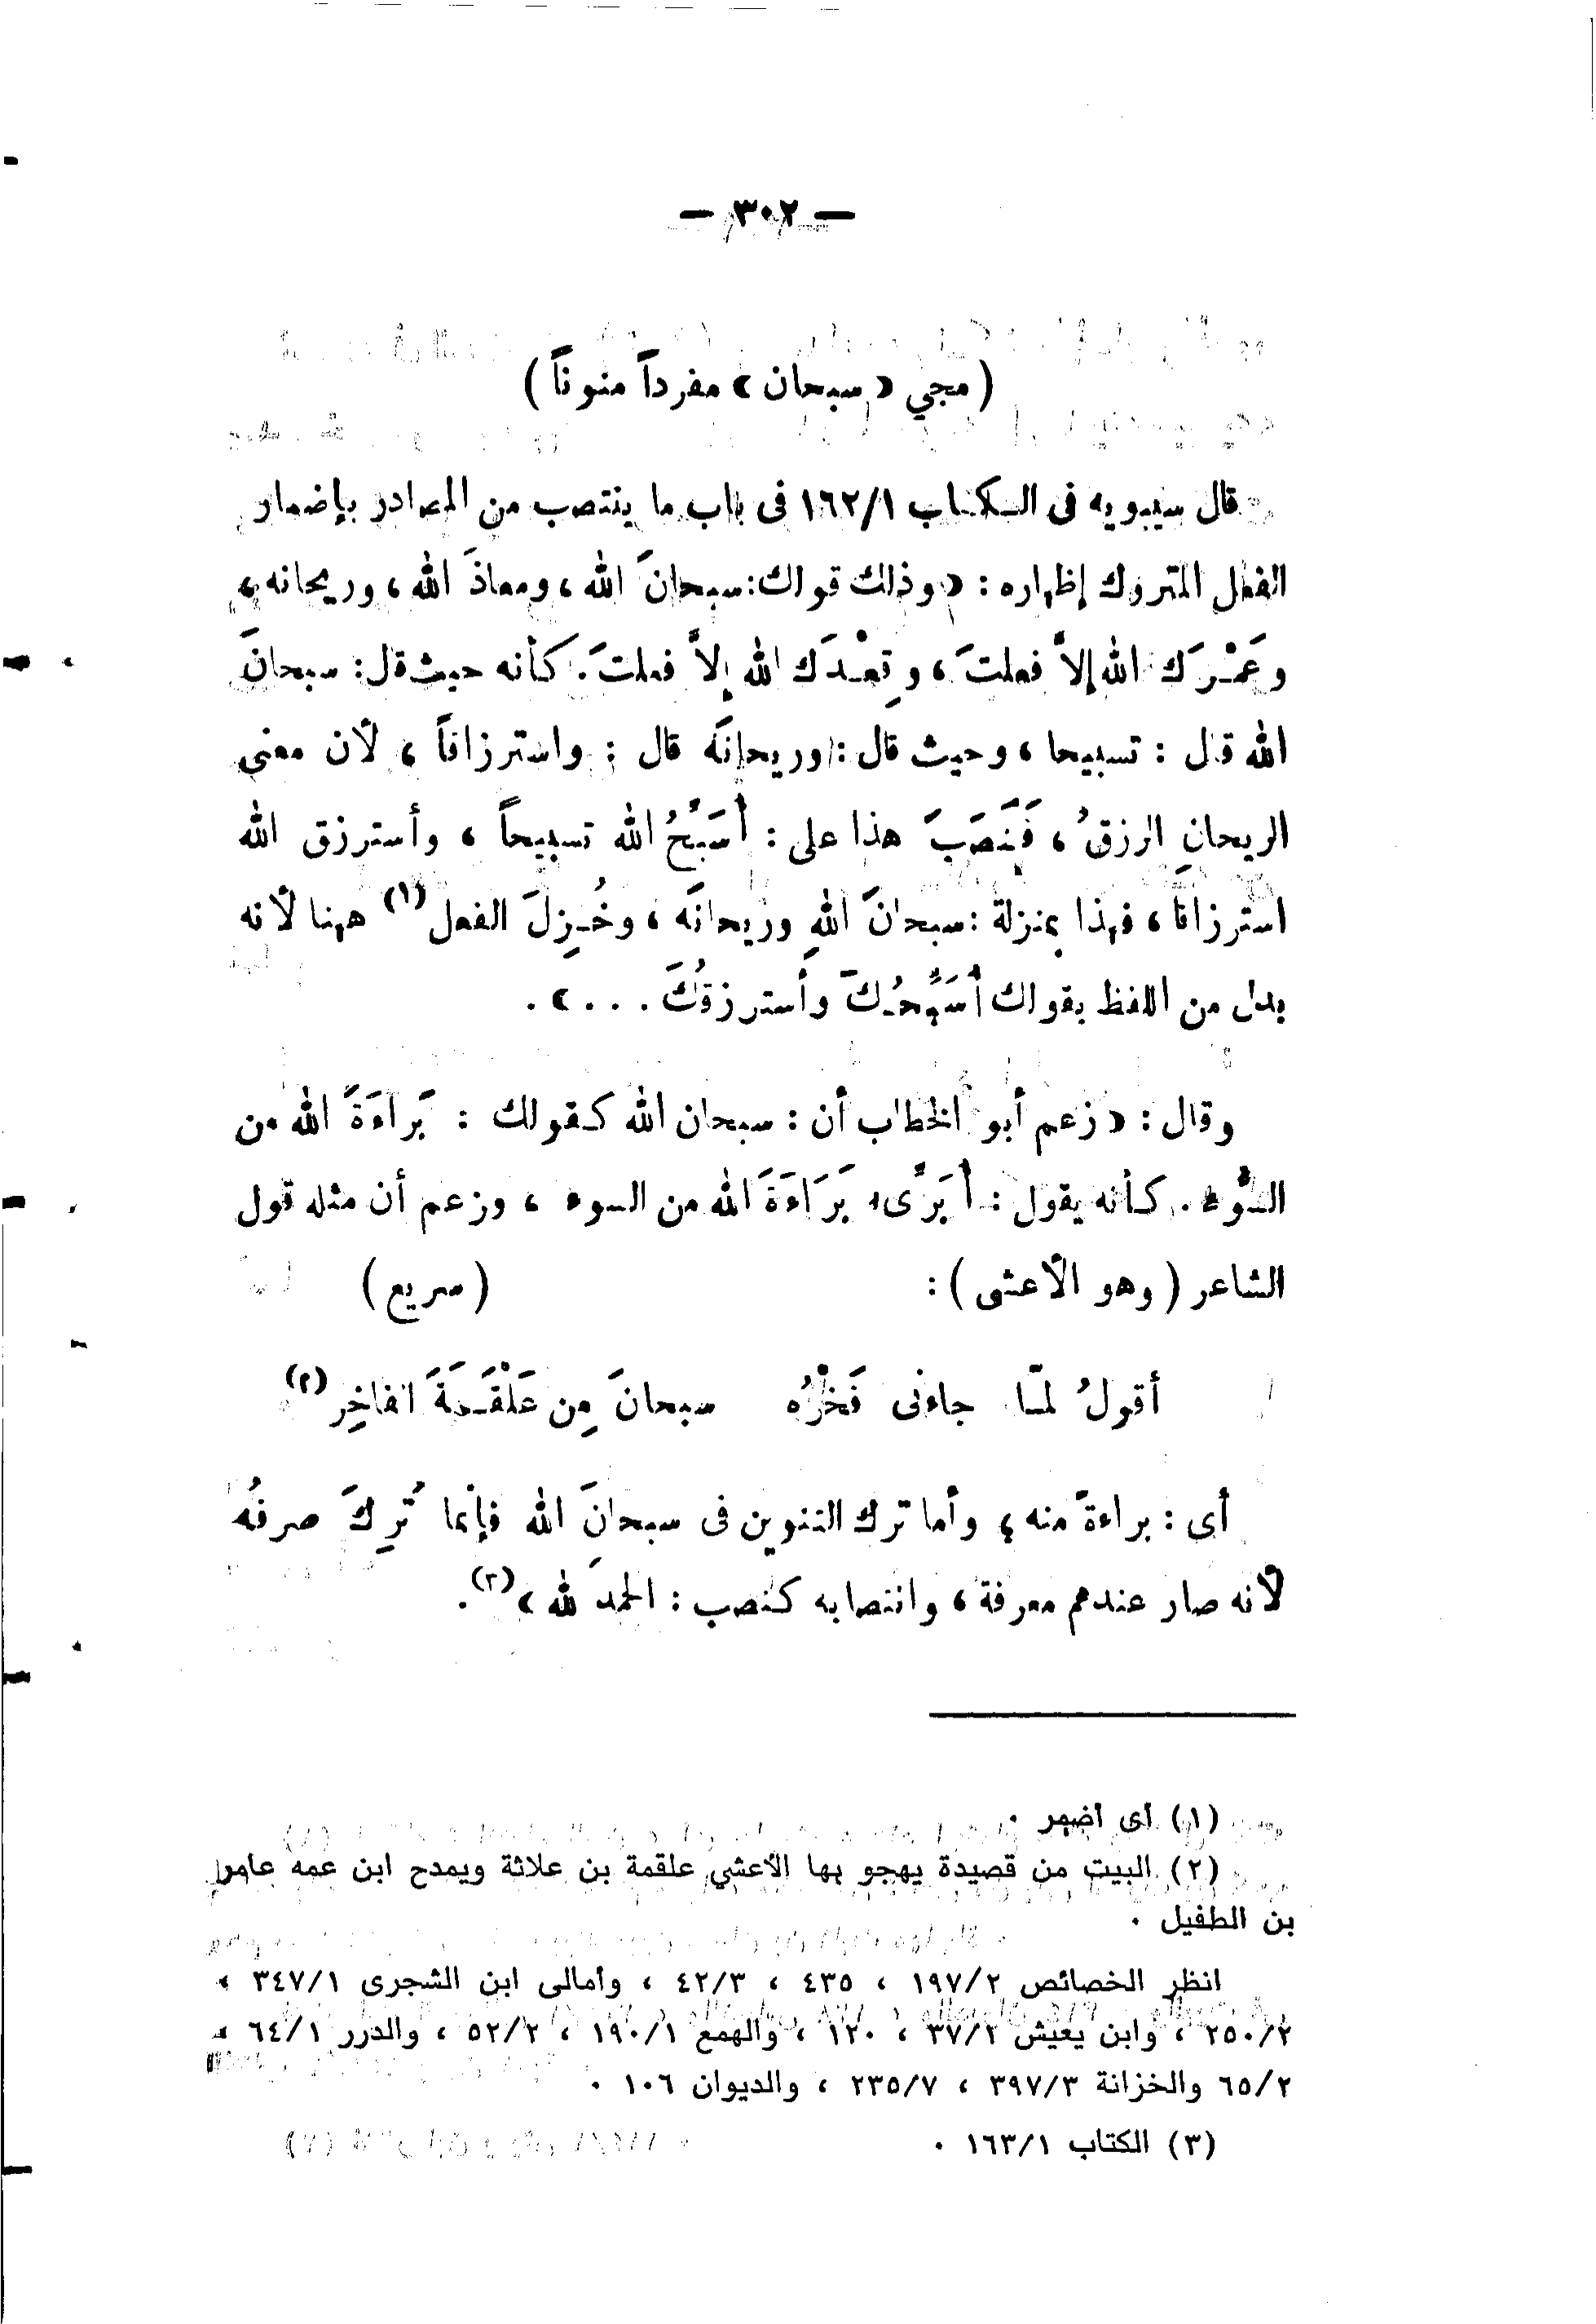 — ٣٠٢ —
( مجي « سبحان » مفرداً منوناً )
قال سيبويه فى الكتاب ١٦٢/١ فى باب ما ينتصب من المصادر بإضمار
الفعل المتروك إظهاره : « وذلك قولك : سبحانَ الله ، ومعاذَ الله ، وريحانه ،
وعَمْرَك الله إلاّ فعلتَ ، وقِعْدَك الله إلاّ فعلتَ . كأنه حيث قال : سبحانَ
الله قال : تسبيحا ، وحيث قال : وريحانَه قال : واسترزاقاً ، لأن معنى
الريحانِ الرزقُ ، فَنَصَبَ هذا على : أُسَبِّحُ الله تسبيحاً ، وأسترزق الله
استرزاقا ، فهذا بمنزلة : سبحانَ اللهِ وريحانَه ، وخُزِلَ الفعل (١) ههنا لأنه
بدل من اللفظ بقولك أُسَبِّحُكَ وأسترزقُكَ . . . » .
وقال : « زعم أبو الخطاب أن : سبحان الله كقولك : بَراءَةَ الله من
السُّوء . كأنه يقول : أُبَرِّىء بَرَاءَةَ الله من السوء ، وزعم أن مثله قول
الشاعر ( وهو الأعشى ) : ( سريع )
أقولُ لمّا جاءنى فَخْرُه سبحانَ مِن عَلْقَمَةَ الفاخِرِ (٢)
أى : براءةً منه ، وأما ترك التنوين فى سبحانَ الله فإنما تُرِكَ صرفُه
لأنه صار عندهم معرفة ، وانتصابه كنصب : الحمدَ لله » (٣) .
(١) أى أضمر .
(٢) البيت من قصيدة يهجو بها الأعشي علقمة بن علاثة ويمدح ابن عمه عامر
بن الطفيل .
انظر الخصائص ١٩٧/٢ ، ٤٣٥ ، ٤٢/٣ ، وأمالى ابن الشجرى ٣٤٧/١ ،
٢٥٠/٢ ، وابن يعيش ٣٧/٢ ، ١٢٠ ، والهمع ١٩٠/١ ، ٥٢/٢ ، والدرر ٦٤/١ ،
٦٥/٢ والخزانة ٣٩٧/٣ ، ٢٣٥/٧ ، والديوان ١٠٦ .
(٣) الكتاب ١٦٣/١ .